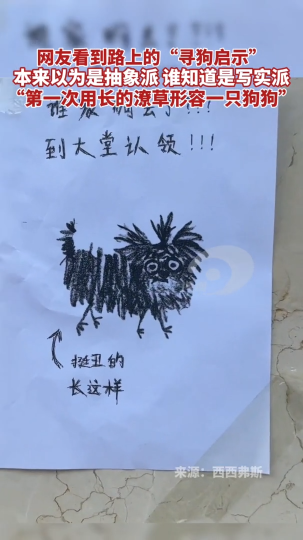 网友看到路上的“寻狗启示”
本来以为是抽象派 谁知道是写实派
“第一次用长的潦草形容一只狗狗”
到大堂认领!!!
挺丑的
长这样
来源：西西弗斯